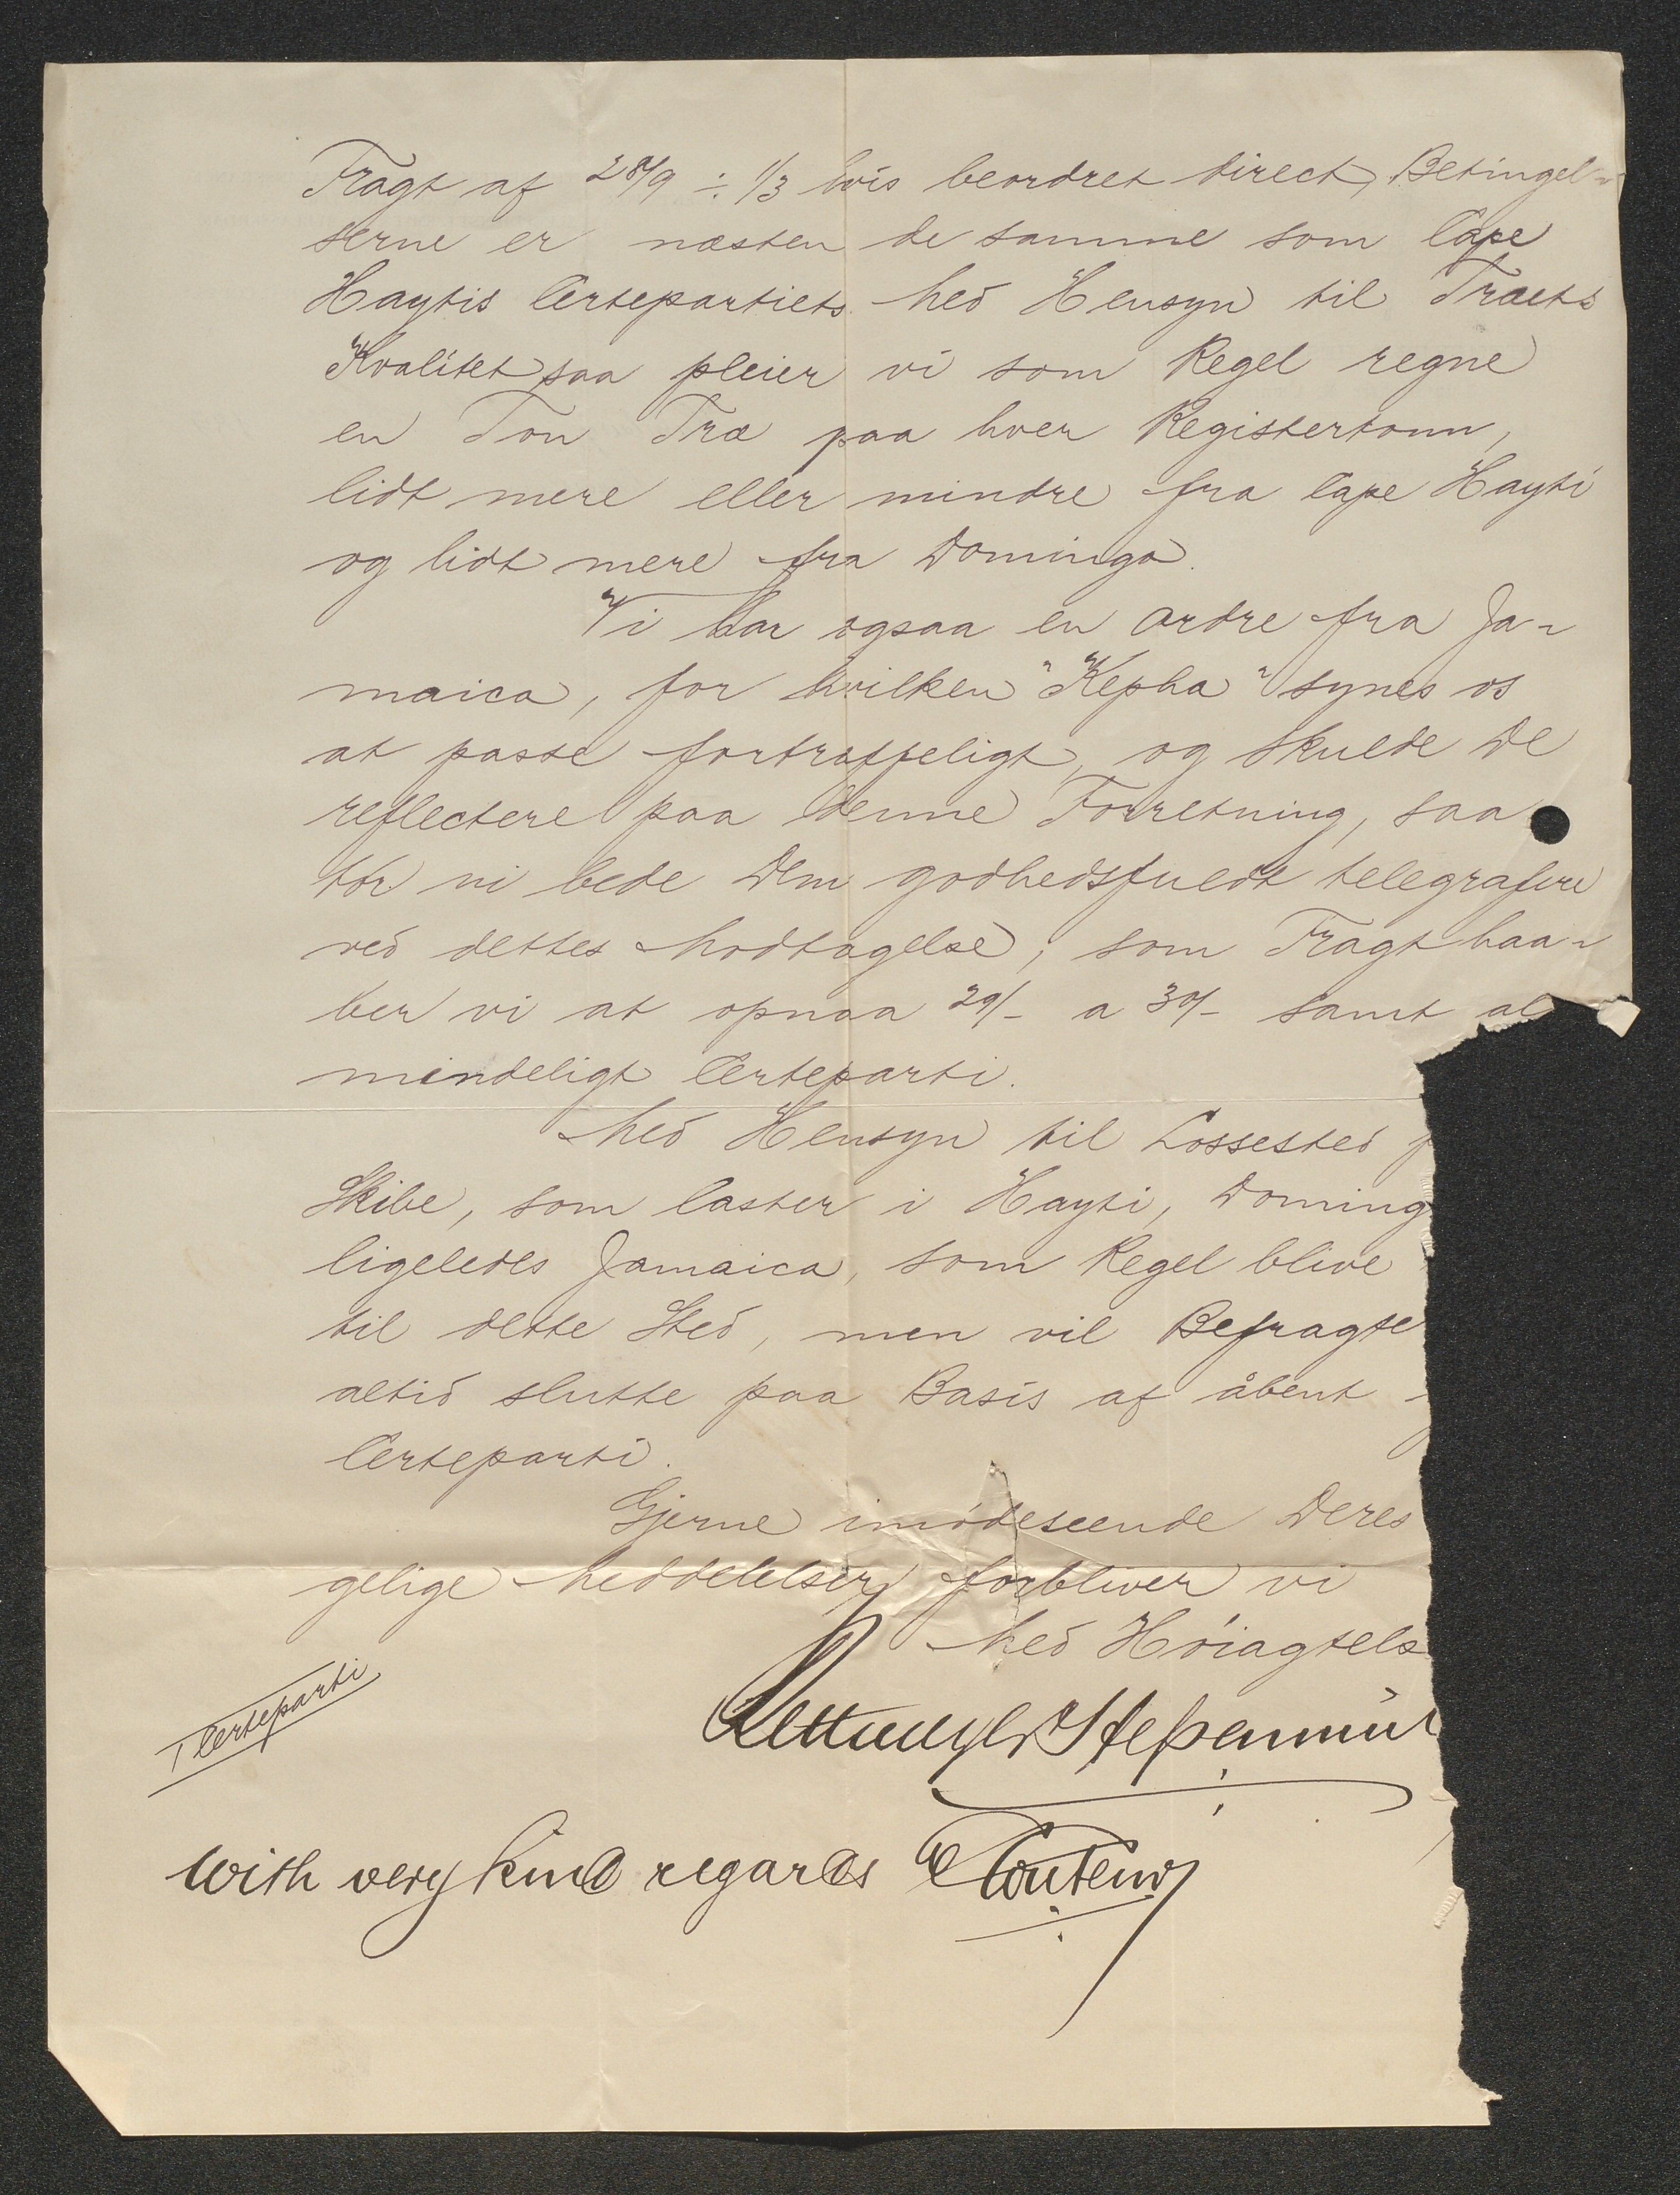 Fragt af 28/9 ÷ 1/3 hvis beordret direct, Betingel-
serne er næsten de samme som Cape
Haytis Certepartiets. Med Hensyn til Træets
Kvalitet saa pleier vi som Regel regne
en Ton Træ paa hver Registertonn,
lidt mere eller mindre fra Cape Hayti
og lidt mere fra Domingo.
Vi har ogsaa en Ordre fra Ja-
maica, for hvilken "Kepha" synes os
at passe fortræffeligt, og skulde De
reflectere paa denne Forretning, saa
tör vi bede Dem godhedsfuldt telegrafere
ved dettes Modtagelse; som Fragt haa-
ber vi at opnaa 29/- a 30/- samt al
mindeligt Certeparti.
Med Hensyn til Lossested
Skibe, som laster i Hayti, Doming
ligeledes Jamaica, som Regel blive
til dette Sted, men vil Befragte
altid slutte paa Basis af åbent
Certeparti.
Gjerne imödeseende Deres
gelige Meddelelser, forbliver vi
Med Höiagtels
1 Certeparti
with very kind regards